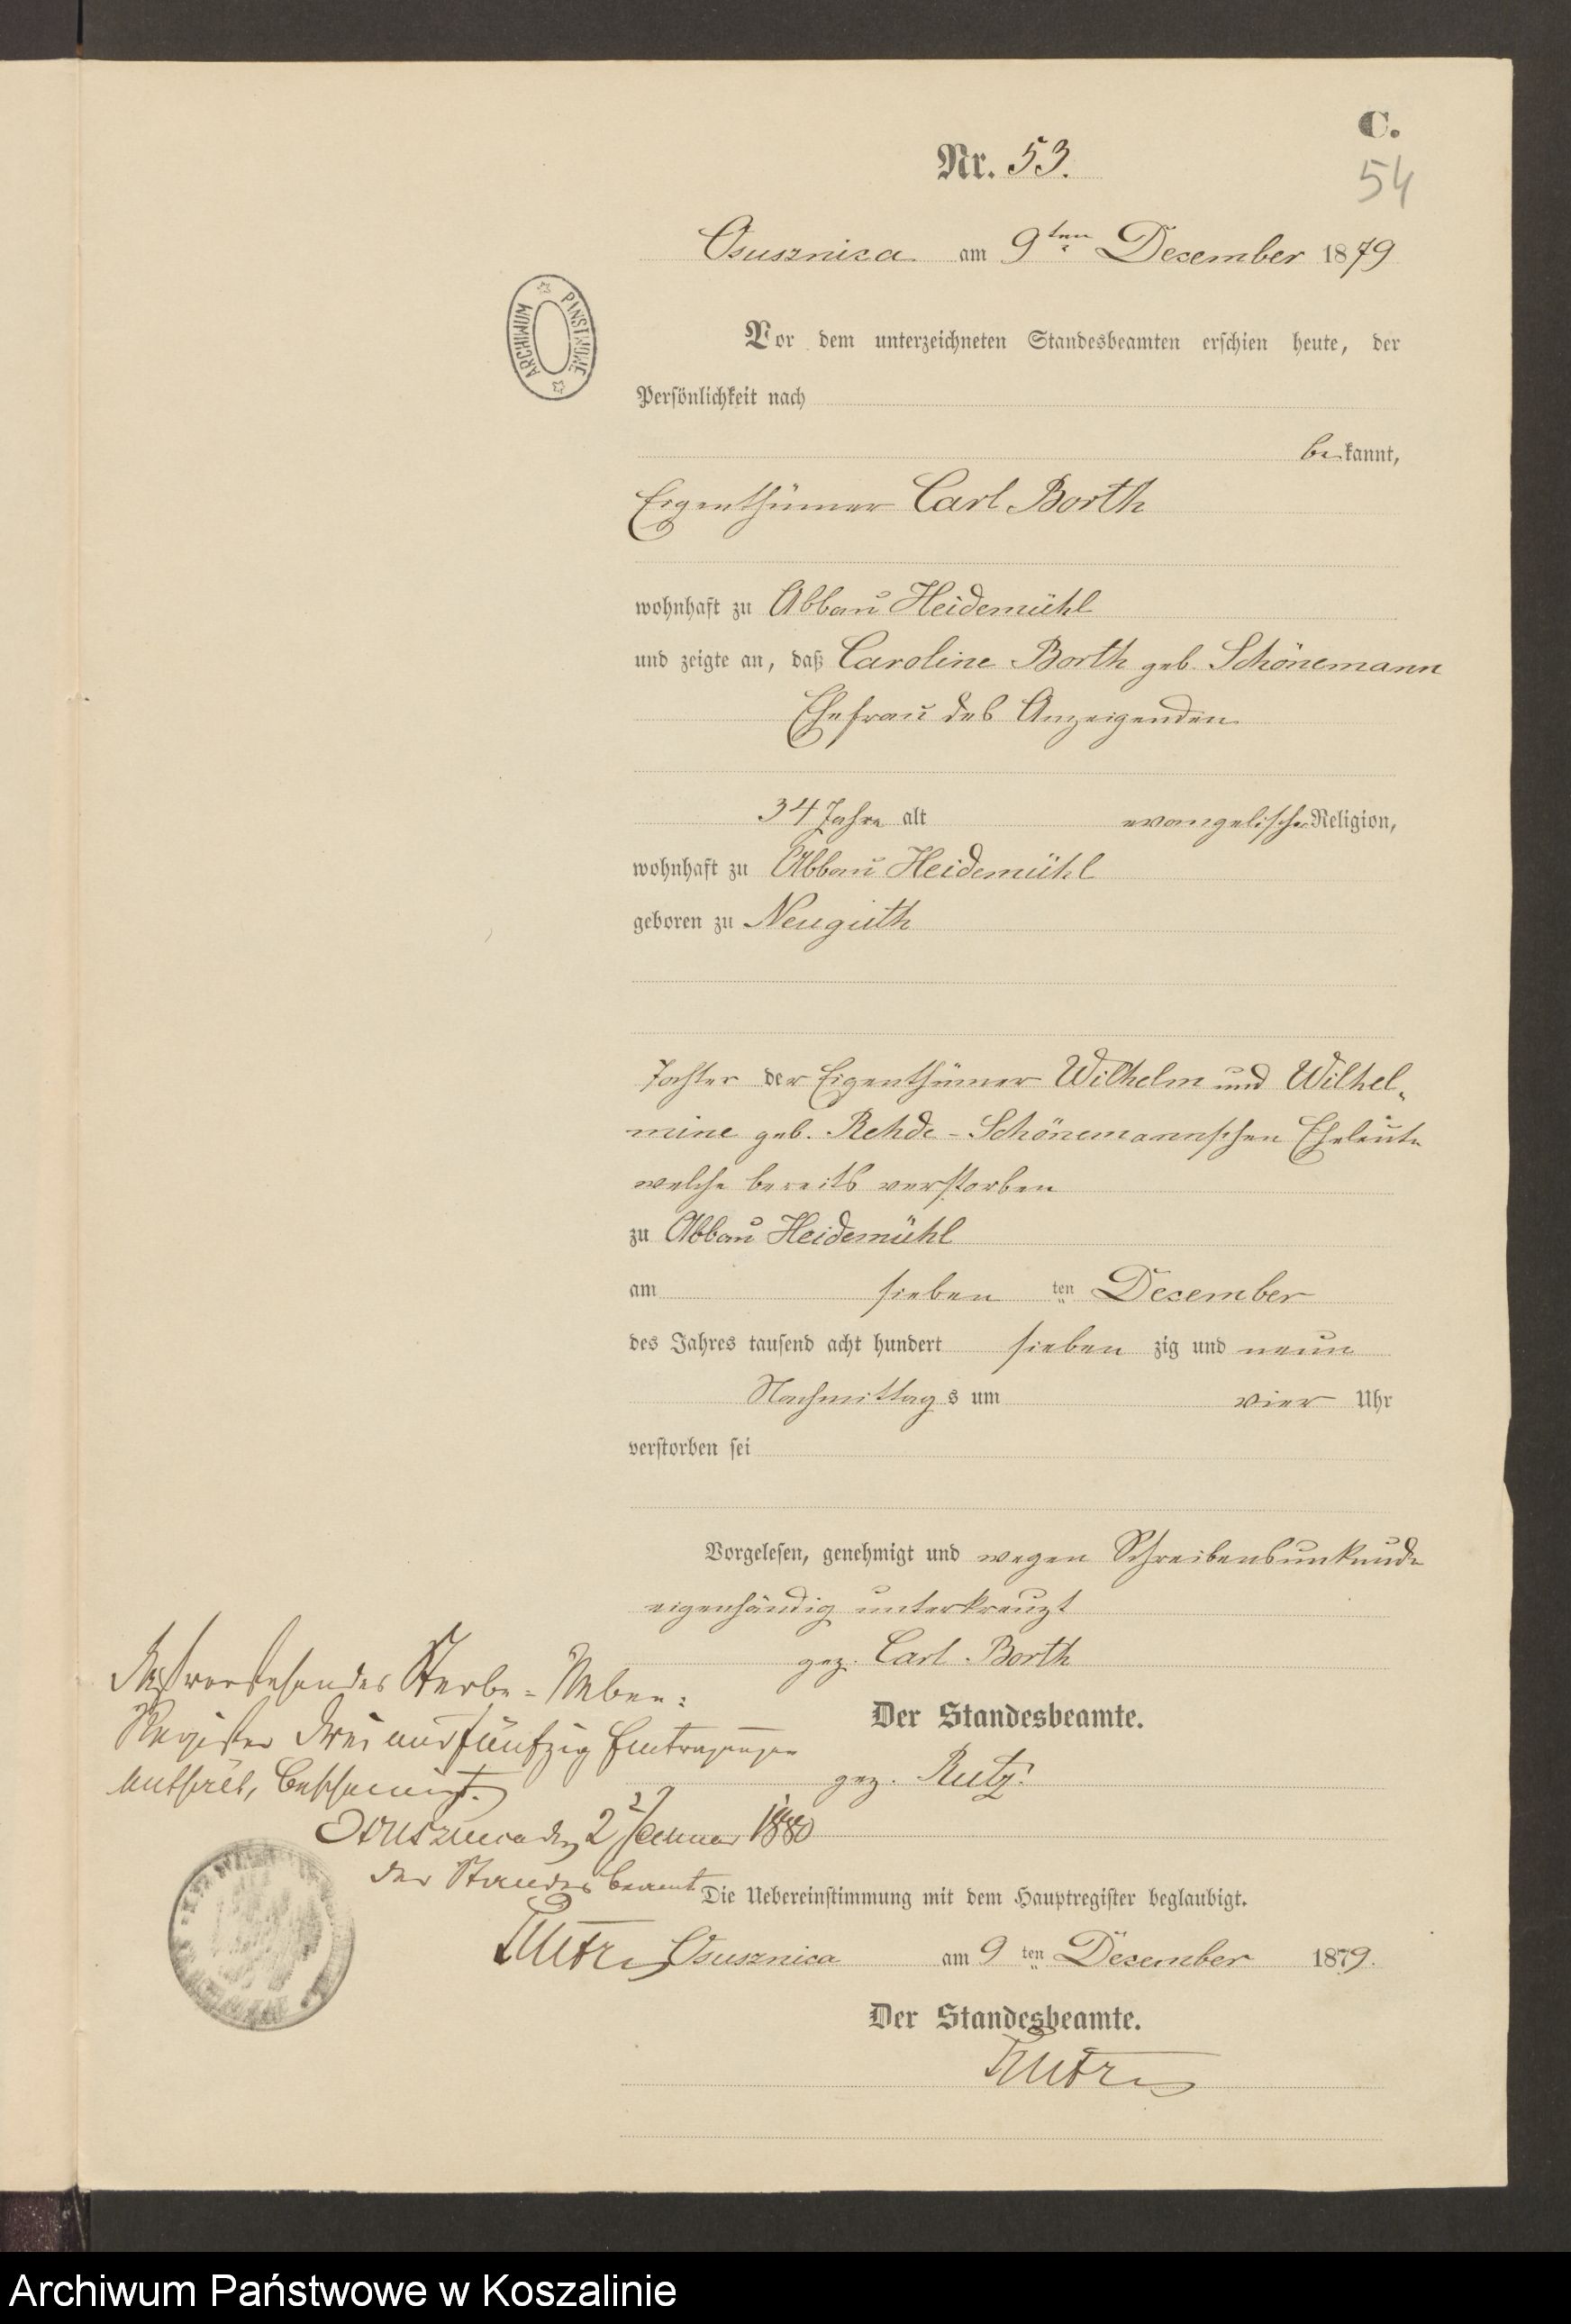 C.
Nr. 53.
54
Osusznica am 9ten December 1879
ARCHIWUM PAŃSTWOWE
Vor dem unterzeichneten Standesbeamten erschien heute, der
Persönlichkeit nach
bekannt,
Eigenthümer Carl Borth
wohnhaft zu Abbau Heidemühl
und zeigte an, daß Caroline Borth geb. Schönemann
Ehefrau des Anzeigenden
34 Jahre alt evangelischer Religion,
wohnhaft zu Abbau Heidemühl
geboren zu Neuguth
Tochter der Eigenthümer Wilhelm und Wilhel-
mine geb. Rehde-Schönemannschen Eheleute
welche bereits verstorben
zu Abbau Heidemühl
am sieben ten December
des Jahres tausend acht hundert sieben zig und neun
Nachmittags um vier Uhr
verstorben sei
Vorgelesen, genehmigt und wegen Schreibensunkunde
eigenhändig unterkreuzt
gez. Carl Borth
Der Standesbeamte.
gez. Rutz.
Daß vorstehendes Sterbe-Neben-
Register drei und fünfzig Eintragungen
enthält, bescheinigt.
Osusznica den 2 Januar 1880
Der Standesbeamte
Rutz
Die Uebereinstimmung mit dem Hauptregister beglaubigt.
Osusznica am 9ten December 1879.
Der Standesbeamte.
Rutz
Archiwum Państwowe w Koszalinie